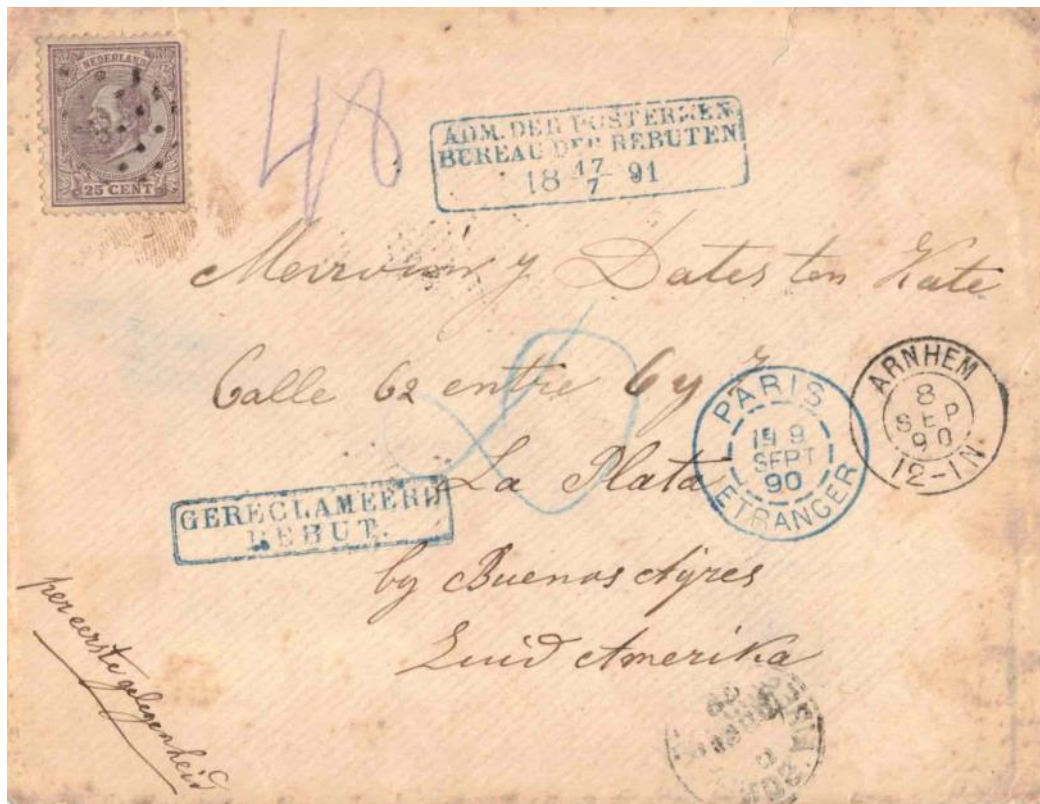 NEDERLAND
25 CENT
48
ADM. DER POSTERIJEN
BUREAU DER REBUTEN
18 17/7 91
y Dates ten Kate
Calle 62 entre 6 y 7
La Plata
by Buenos Ayres
Zuid Amerika
PARIS
9
SEPT
90
ETRANGER
ARNHEM
8
SEP
90
12-1N
GERECLAMEERD
REBUT.
per eerste gelegenheid